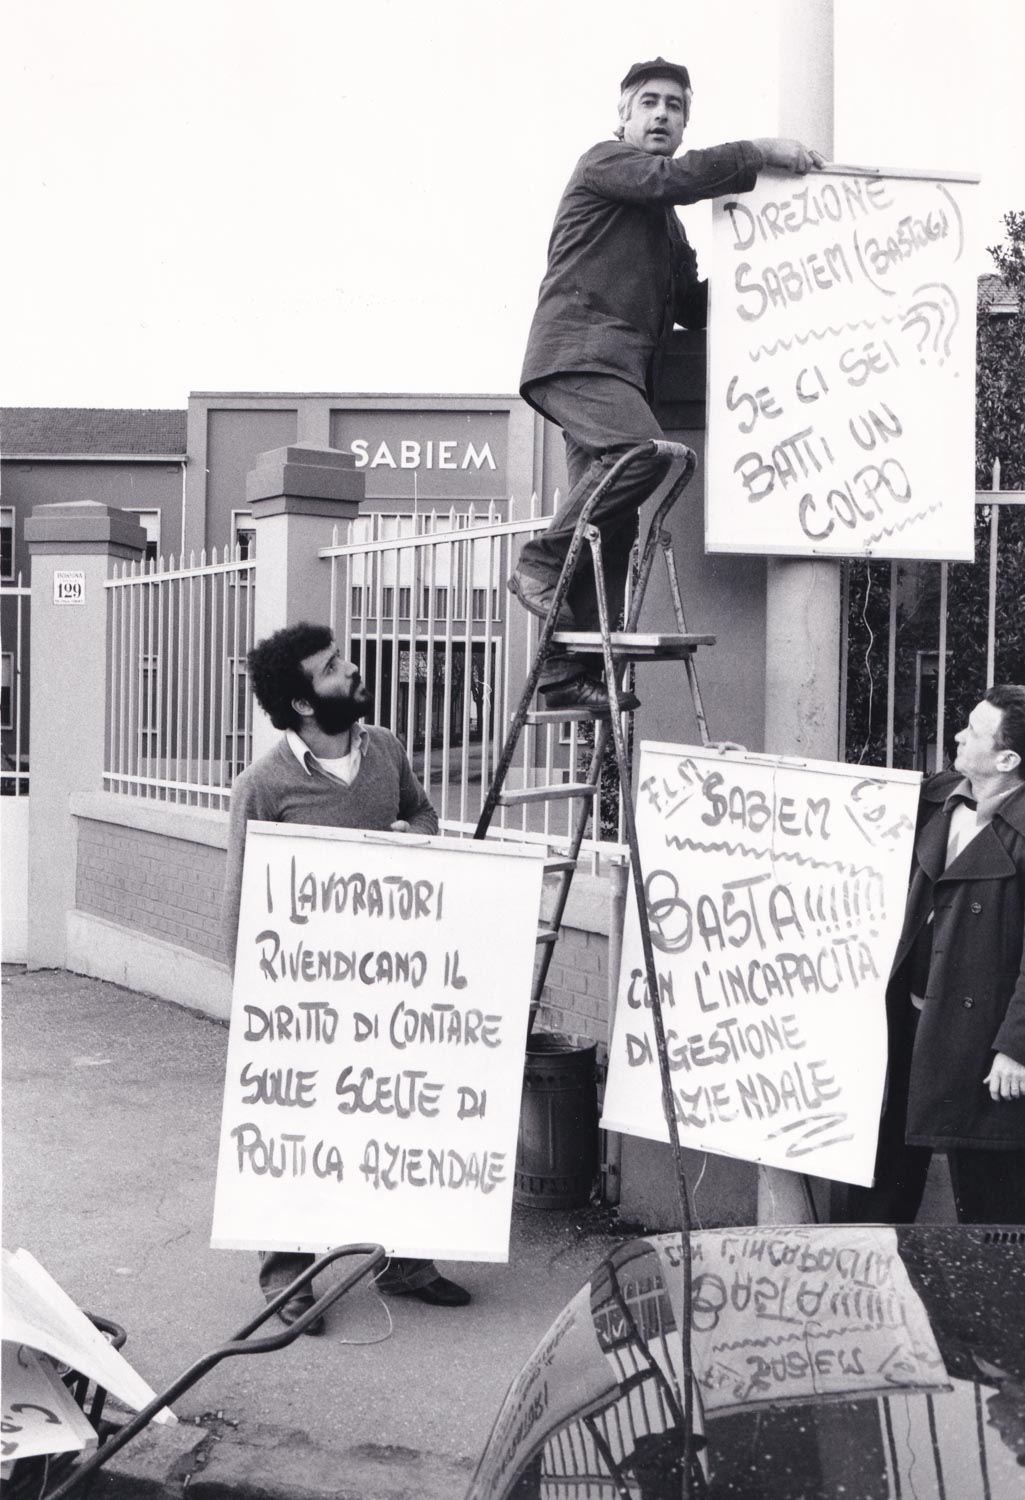 SABIEM
129
DIREZIONE
SABIEM (BASTOGI)
SE CI SEI ???
BATTI UN
COLPO
I LAVORATORI
RIVENDICANO IL
DIRITTO DI CONTARE
SULLE SCELTE DI
POLITICA AZIENDALE
F.L.M. SABIEM C.D.F.
BASTA!!!!!!!
CON L'INCAPACITÀ
DI GESTIONE
AZIENDALE